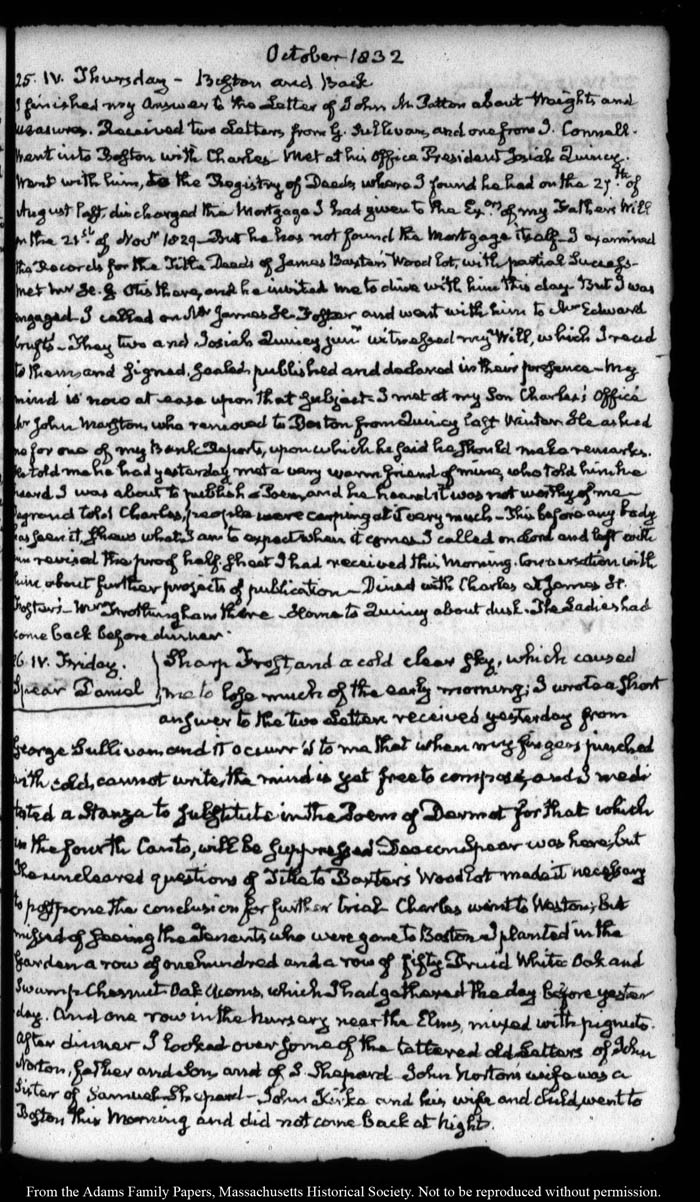 October 1832
25. IV. Thursday – Boston and Back
I finished my Answer to the Letter of John M. Patton about Weights and
Measures. Received two Letters from G. Sullivan, and one from J. Connell.
Went into Boston with Charles – Met at his Office President Josiah Quincy.
Went with him, to the Registry of Deeds, where I found he had on the 27th. of
August last, discharged the Mortgage I had given to the Exors of my Father's Will
on the 21st. of Novr 1829 – But he has not found the Mortgage itself – I examined
the Records for the Title Deeds of James Baxter's Wood lot, with partial Success –
Met Mr H. G. Otis there, and he invited me to dine with him this day – But I was
engaged – I called on Mr James H. Foster and went with him to Mr Edward
Cruft's – They two and Josiah Quincy junr. witnessed my Will, which I read
to them and signed, sealed, published and declared in their presence – My
mind is now at ease upon that subject – I met at my Son Charles's Office
Mr John Marston, who removed to Boston from Quincy last Winter. He asked
me for one of my Bank Reports, upon which he said he should make remarks.
He told me he had yesterday met a very warm friend of mine, who told him he
heard I was about to publish a Poem, and he heard it was not worthy of me –
told Charles, people were carping at it very much – This before any body
has seen it, shews what I am to expect when it comes. I called on and left with
him revised the proof half sheet I had received this Morning. Conversation with
him about further projects of publication – Dined with Charles at James H.
Foster's – Mr Frothingham there – Home to Quincy about dusk. The Ladies had
come back before dinner.
26. IV. Friday. Sharp Frost, and a cold clear sky, which caused
Spear Daniel me to lose much of the early morning; I wrote a short
answer to the two Letters received yesterday from
George Sullivan, and it occurr'd to me that when my fingers pinched
with cold, cannot write, the mind is yet free to compose, and I medi
tated a Stanza to substitute in the Poem of Dermot for that which
in the fourth Canto, will be suppressed – Deacon Spear was here, but
the uncleared questions of Title to Baxter's Wood Lot made it necessary
to postpone the conclusion for further trial – Charles went to Weston; but
missed of seeing the Tenants who were gone to Boston – I planted in the
Garden a row of one hundred and a row of fifty White Oak and
Swamp Chesnut Oak Acorns, which I had gathered the day before yester
day. And one row in the nursery near the Elms, mixed with pignuts.
After dinner I looked over some of the tattered old Letters of John
Norton, father and Son, and of S. Shepard – John Norton's wife was a
Sister of Samuel Shepard – John Kirke and his wife and child, went to
Boston this Morning and did not come back at night.
From the Adams Family Papers, Massachusetts Historical Society. Not to be reproduced without permission.